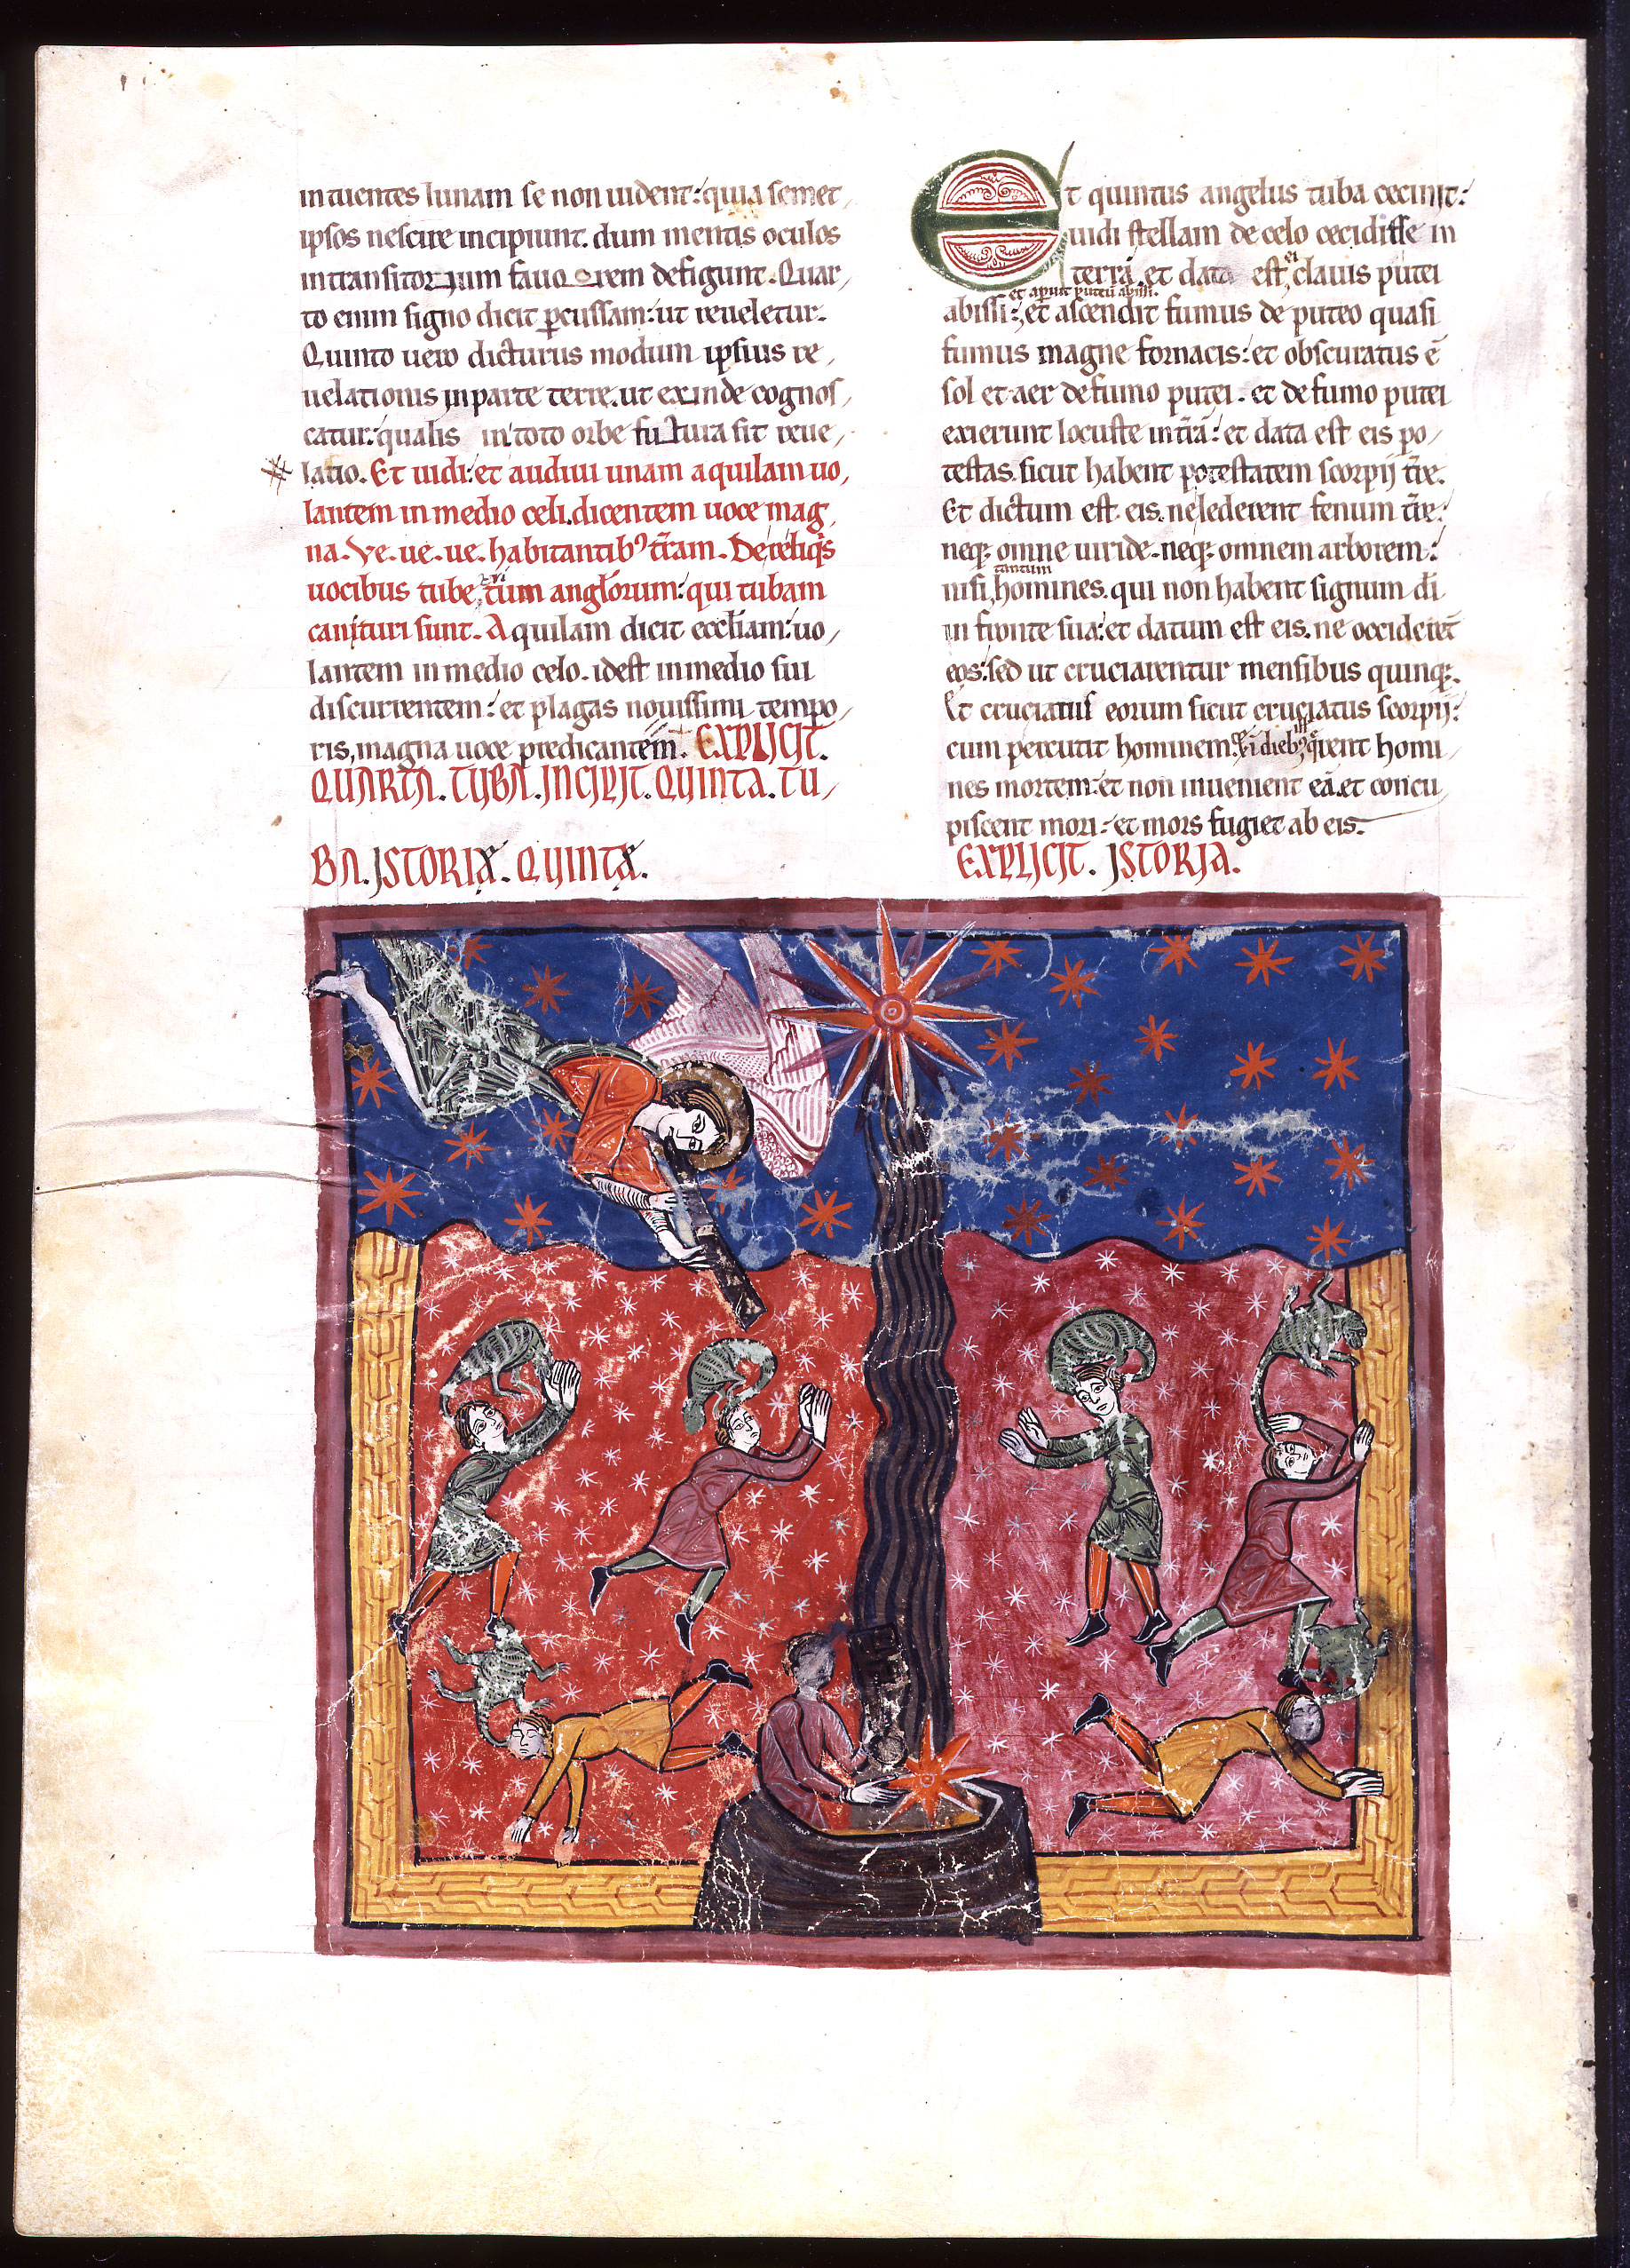 intuentes lunam se non uident: quia semet
ipsos nescire incipiunt. dum mentis oculos
in transitorium fauorem defigunt. Quar
to enim signo dicit ꝑcussam: ut reueletur.
Quinto uero dicturus modum ipsius re
uelationis in parte terre. ut exinde cognos
catur: qualis in toto orbe futura sit reue
latio. Et uidi: et audiui unam aquilam uo
lantem in medio celi. dicentem uoce mag
na. Ve. ue. ue. habitantibꝰ t̄ram. De reliqͥs
uocibus tube trium angl̄orum: qui tubam
canituri sunt. Aquilam dicit eccl̄iam: uo
lantem in medio celo. idest in medio sui
discurrentem: et plagas nouissimi tempo
ris, magna uoce predicantem. EXPLICIT.
QUARTA. TUBA. INCIPIT. QUINTA. TU
BA. ISTORIAE. QUINTAE.
Et quintus angelus tuba cecinit:
uidi stellam de celo cecidisse in
terrā. et data est ei clauis putei
et aperuit puteū abissi.
abissi: et ascendit fumus de puteo quasi
fumus magne fornacis: et obscuratus ē
sol et aer de fumo putei. et de fumo putei
exierunt locuste in t̄rā: et data est eis po
testas. sicut habent potestatem scorpij t̄re.
Et dictum est eis. ne lederent fenum t̄re:
neq; omne uiride. neq; omnem arborem:
nisi tantum homines. qui non habent signum dī
in fronte sua: et datum est eis. ne occiderēt
eos: sed ut cruciarentur mensibus quinq;.
Et cruciatus eorum sicut cruciatus scorpij:
cum percutit hominem. diebꝰ q̄rent homi
nes mortem: et non inuenient eā. et concu
piscent mori: et mors fugiet ab eis.
EXPLICIT. ISTORIA.